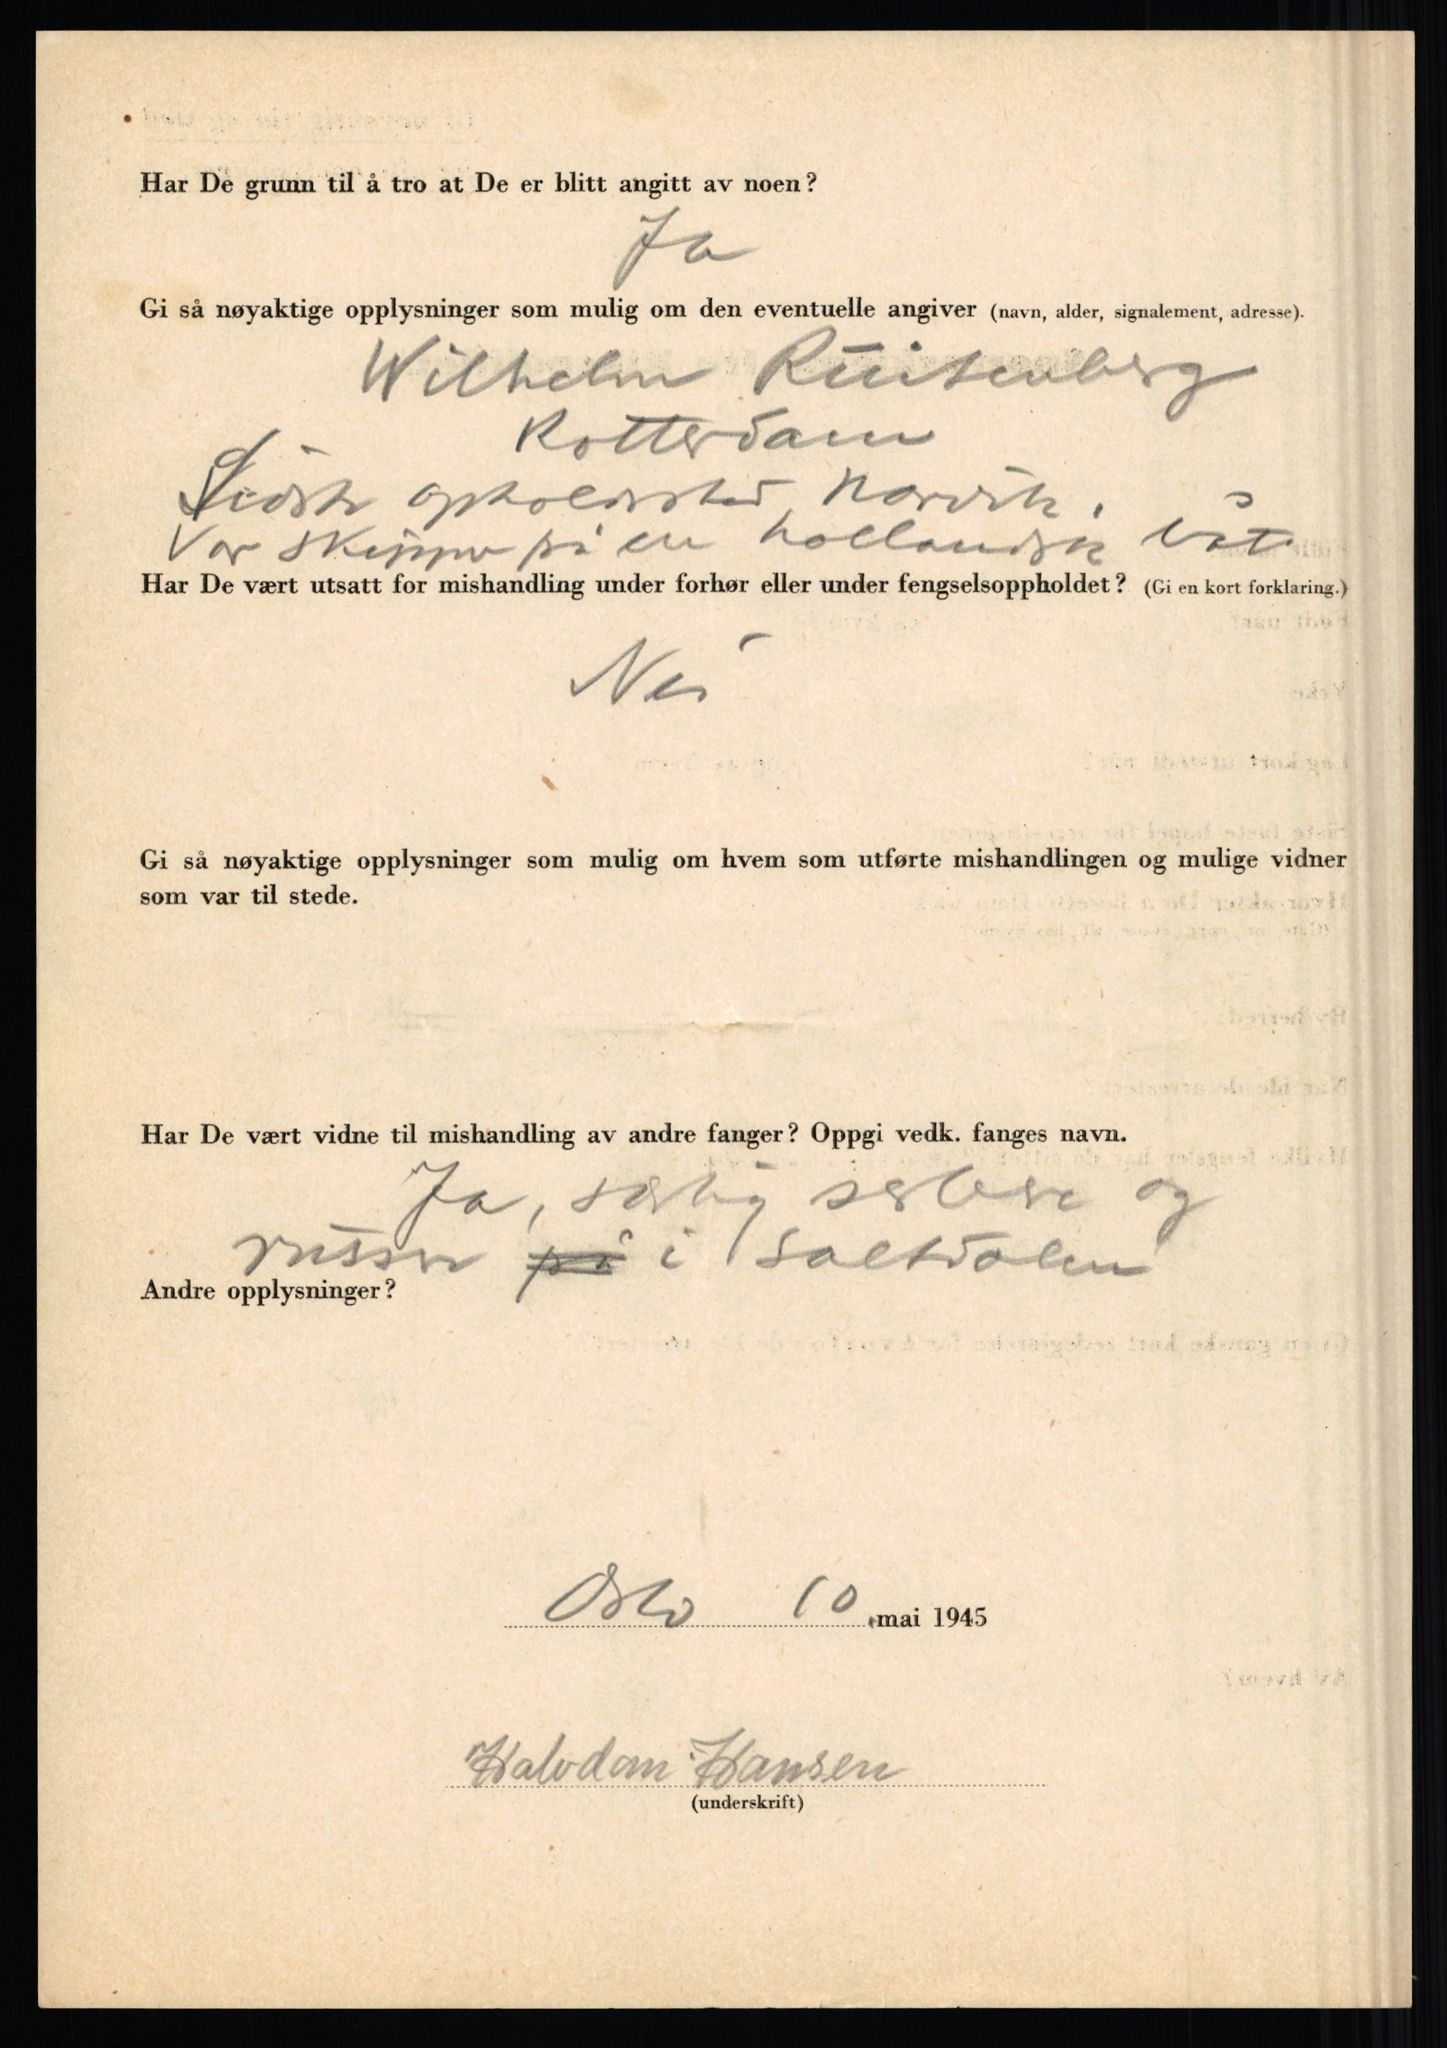 Har De grunn til å tro at De er blitt angitt av noen?
Ja
Gi så nøyaktige opplysninger som mulig om den eventuelle angiver (navn, alder, signalement, adresse).
Wilhelm Ruitenberg
Rotterdam
Sidste opholdssted Narvik.
Var skipper på en hollandsk båt.
Har De vært utsatt for mishandling under forhør eller under fengselsoppholdet? (Gi en kort forklaring.)
Nei
Gi så nøyaktige opplysninger som mulig om hvem som utførte mishandlingen og mulige vidner
som var til stede.
Har De vært vidne til mishandling av andre fanger? Oppgi vedk. fanges navn.
Ja, særlig serbere og
russere på i Saltdalen
Andre opplysninger?
Oslo 10 mai 1945
Halvdan Hansen
(underskrift)